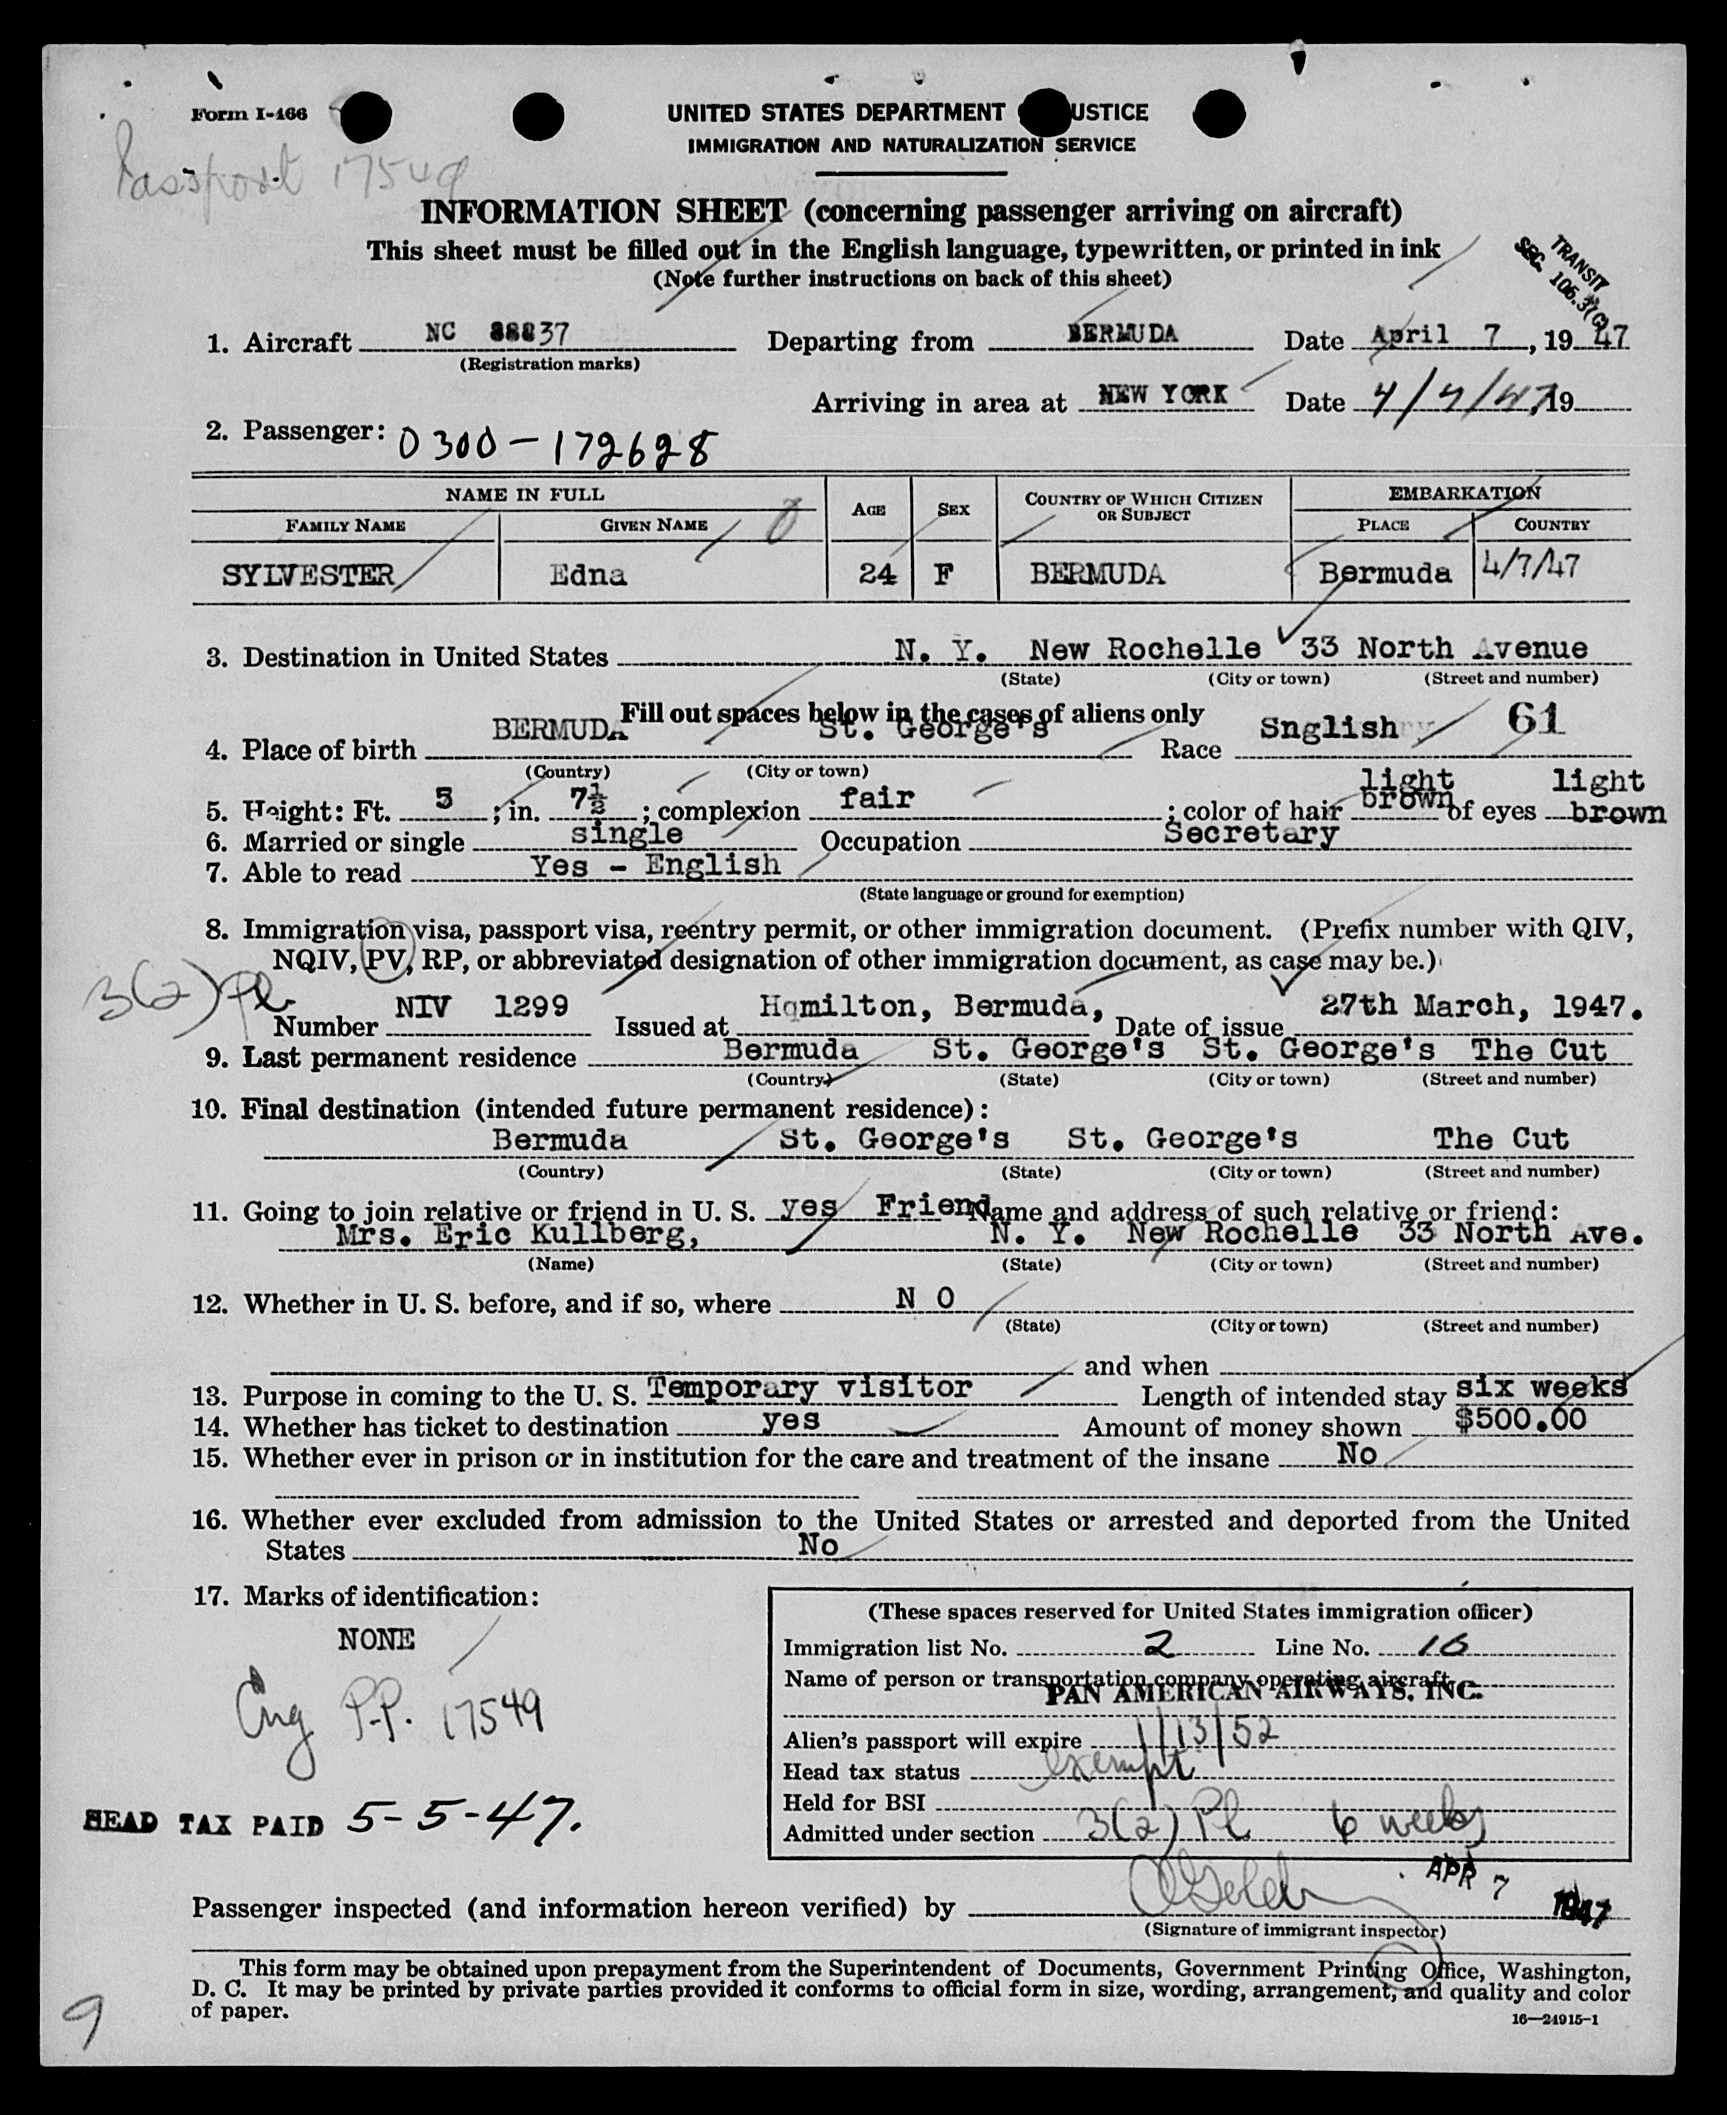 Form I-466
UNITED STATES DEPARTMENT USTICE
IMMIGRATION AND NATURALIZATION SERVICE
Passport 17549
INFORMATION SHEET (concerning passenger arriving on aircraft)
This sheet must be filled out in the English language, typewritten, or printed in ink
(Note further instructions on back of this sheet)
TRANSIT
SEC. 106.3(C)
1. Aircraft NC 88837 Departing from BERMUDA Date April 7, 1947
(Registration marks)
Arriving in area at NEW YORK Date 4/7/47, 19
2. Passenger: 0300-172628
NAME IN FULL AGE SEX COUNTRY OF WHICH CITIZEN OR SUBJECT EMBARKATION
FAMILY NAME GIVEN NAME PLACE COUNTRY
SYLVESTER Edna 24 F BERMUDA Bermuda 4/7/47
3. Destination in United States N. Y. New Rochelle 33 North Avenue
(State) (City or town) (Street and number)
Fill out spaces below in the cases of aliens only
4. Place of birth BERMUDA St. George's Race Snglish 61
(Country) (City or town)
5. Height: Ft. 5; in. 7½; complexion fair; color of hair light brown of eyes light brown
6. Married or single single Occupation Secretary
7. Able to read Yes - English
(State language or ground for exemption)
8. Immigration visa, passport visa, reentry permit, or other immigration document. (Prefix number with QIV,
NQIV, PV, RP, or abbreviated designation of other immigration document, as case may be.)
3(2) Pl
Number NIV 1299 Issued at Hamilton, Bermuda, Date of issue 27th March, 1947.
9. Last permanent residence Bermuda St. George's St. George's The Cut
(Country) (State) (City or town) (Street and number)
10. Final destination (intended future permanent residence):
Bermuda St. George's St. George's The Cut
(Country) (State) (City or town) (Street and number)
11. Going to join relative or friend in U. S. yes Friend Name and address of such relative or friend:
Mrs. Eric Kullberg, N. Y. New Rochelle 33 North Ave.
(Name) (State) (City or town) (Street and number)
12. Whether in U. S. before, and if so, where N O
(State) (City or town) (Street and number)
and when
13. Purpose in coming to the U. S. Temporary visitor Length of intended stay six weeks
14. Whether has ticket to destination yes Amount of money shown $500.00
15. Whether ever in prison or in institution for the care and treatment of the insane No
16. Whether ever excluded from admission to the United States or arrested and deported from the United
States No
17. Marks of identification:
NONE
Eng P.P. 17549
HEAD TAX PAID 5-5-47.
(These spaces reserved for United States immigration officer)
Immigration list No. 2 Line No. 16
Name of person or transportation company operating aircraft
PAN AMERICAN AIRWAYS, INC.
Alien's passport will expire 1/13/52
Head tax status exempt
Held for BSI
Admitted under section 3(2) Pl 6 weeks
APR 7 1947
Passenger inspected (and information hereon verified) by
(Signature of immigrant inspector)
This form may be obtained upon prepayment from the Superintendent of Documents, Government Printing Office, Washington,
D. C. It may be printed by private parties provided it conforms to official form in size, wording, arrangement, and quality and color
of paper.
16—24915-1
9